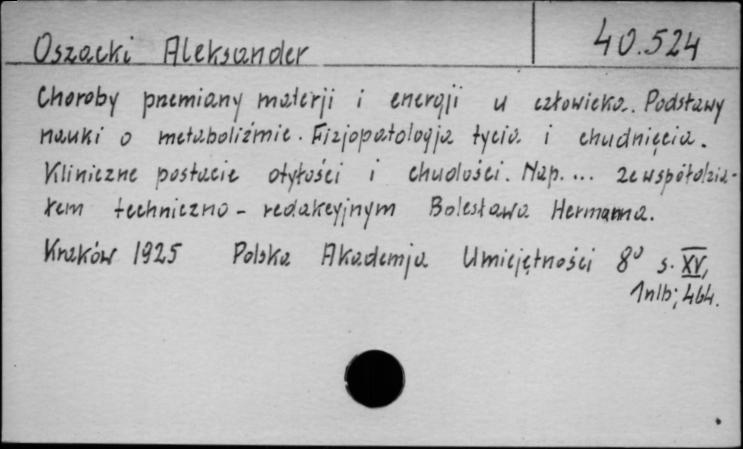 Oszacki Aleksander 40.524
Choroby przemiany materji i energji u człowieka. Podstawy
nauki o metaboliźmie. Fizjopatologja tycia i chudnięcia.
Kliniczne postacie otyłości i chudości. Nap. ... ze współdzia-
łem techniczno-redakcyjnym Bolesława Hermanna.
Kraków 1925 Polska Akademja Umiejętności 8° s. XV,
1nlb; 464.